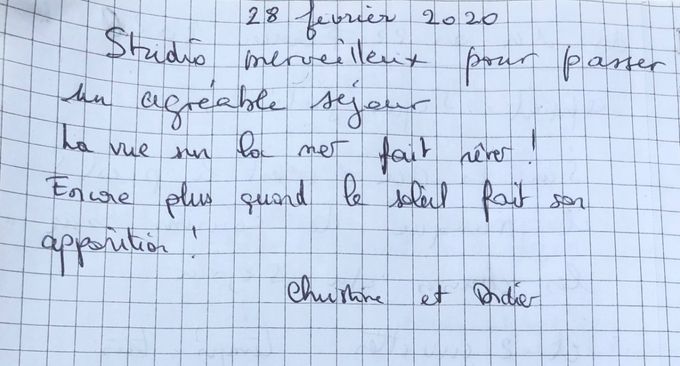 28 février 2020
Studio merveilleux pour passer
un agréable séjour
La vue sur la mer fait rêver !
Encore plus quand le soleil fait son
apparition !
Christine et Didier